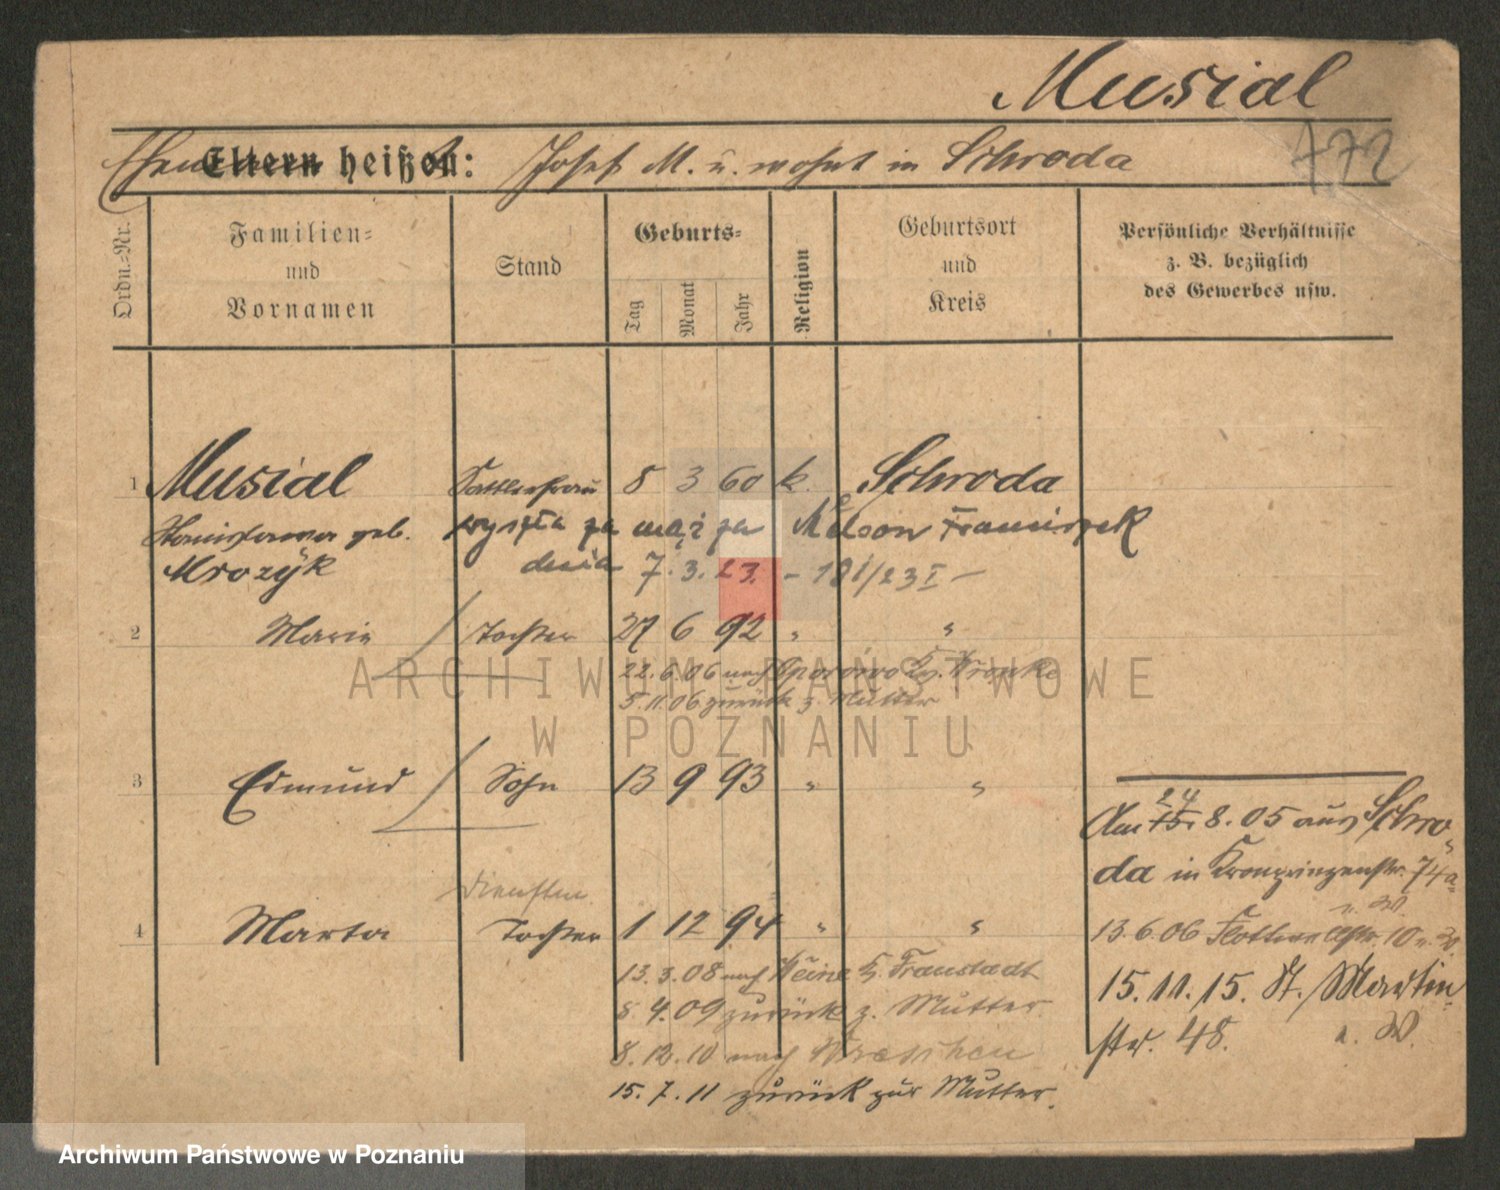 Musial
772
Ehemann
Eltern heißen: Josef M. u. wohnt in Schroda
Ordn.-Nr.
Familien-
und
Vornamen
Stand
Geburts-
Tag
Monat
Jahr
Religion
Geburtsort
und
Kreis
Persönliche Verhältnisse
z. B. bezüglich
des Gewerbes usw.
1 Musial Sattlerfrau 8 3 60 k. Schroda
Stanislawa geb. wyszła za mąż za Nelson Franciszek
Mrozyk dnia 7.3.23. - 181/23 I -
2 Marie Tochter 27 6 92 " "
22.6.06 nach Kr. Wronke
5.11.06 zurück z. Mutter
3 Edmund Sohn 13 9 93 " "
Am 15. 24 8.05 aus Schro-
da in Kronprinzenstr. 74a
Marta
4 Tochter 1 12 94 " "
13.6.06 10 u. W.
13.3.08 nach Kr. Fraustadt
15.11.15. St. Martin-
8.4.09 zurück z. Mutter.
str. 48. u. W.
8.12.10 nach Wreschen
15.7.11 zurück zur Mutter.
ARCHIWUM PAŃSTWOWE
W POZNANIU
Archiwum Państwowe w Poznaniu